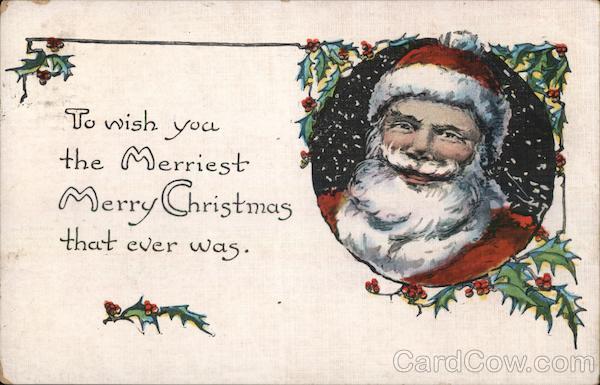 To wish you
the Merriest
Merry Christmas
that ever was.
CardCow.com